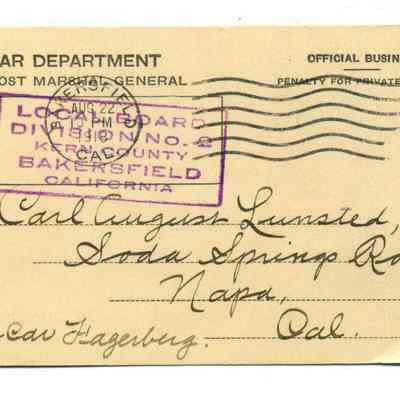 AR DEPARTMENT
OFFICIAL BUSIN
OST MARSHAL GENERAL
PENALTY FOR PRIVATE
BAKERSFIELD
AUG 22
PM
CAL.
LOCAL BOARD
DIVISION NO. 2
KERN COUNTY
BAKERSFIELD
CALIFORNIA
Carl August Lunsted,
Soda Springs Ro
Napa,
Cal.
car Fagerberg.